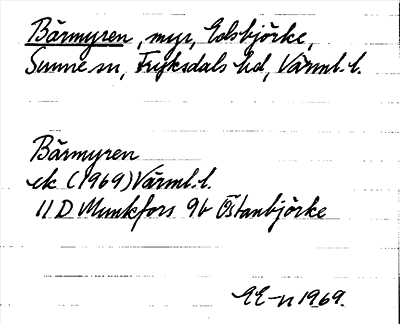 Bärmyren, myr, Edsbjörke,
Sunne sn, Fryksdals hd, Värml. l.
Bärmyren
ek (1969) Värml. l.
11 D Munkfors 9b Östanbjörke
EE-n 1969.